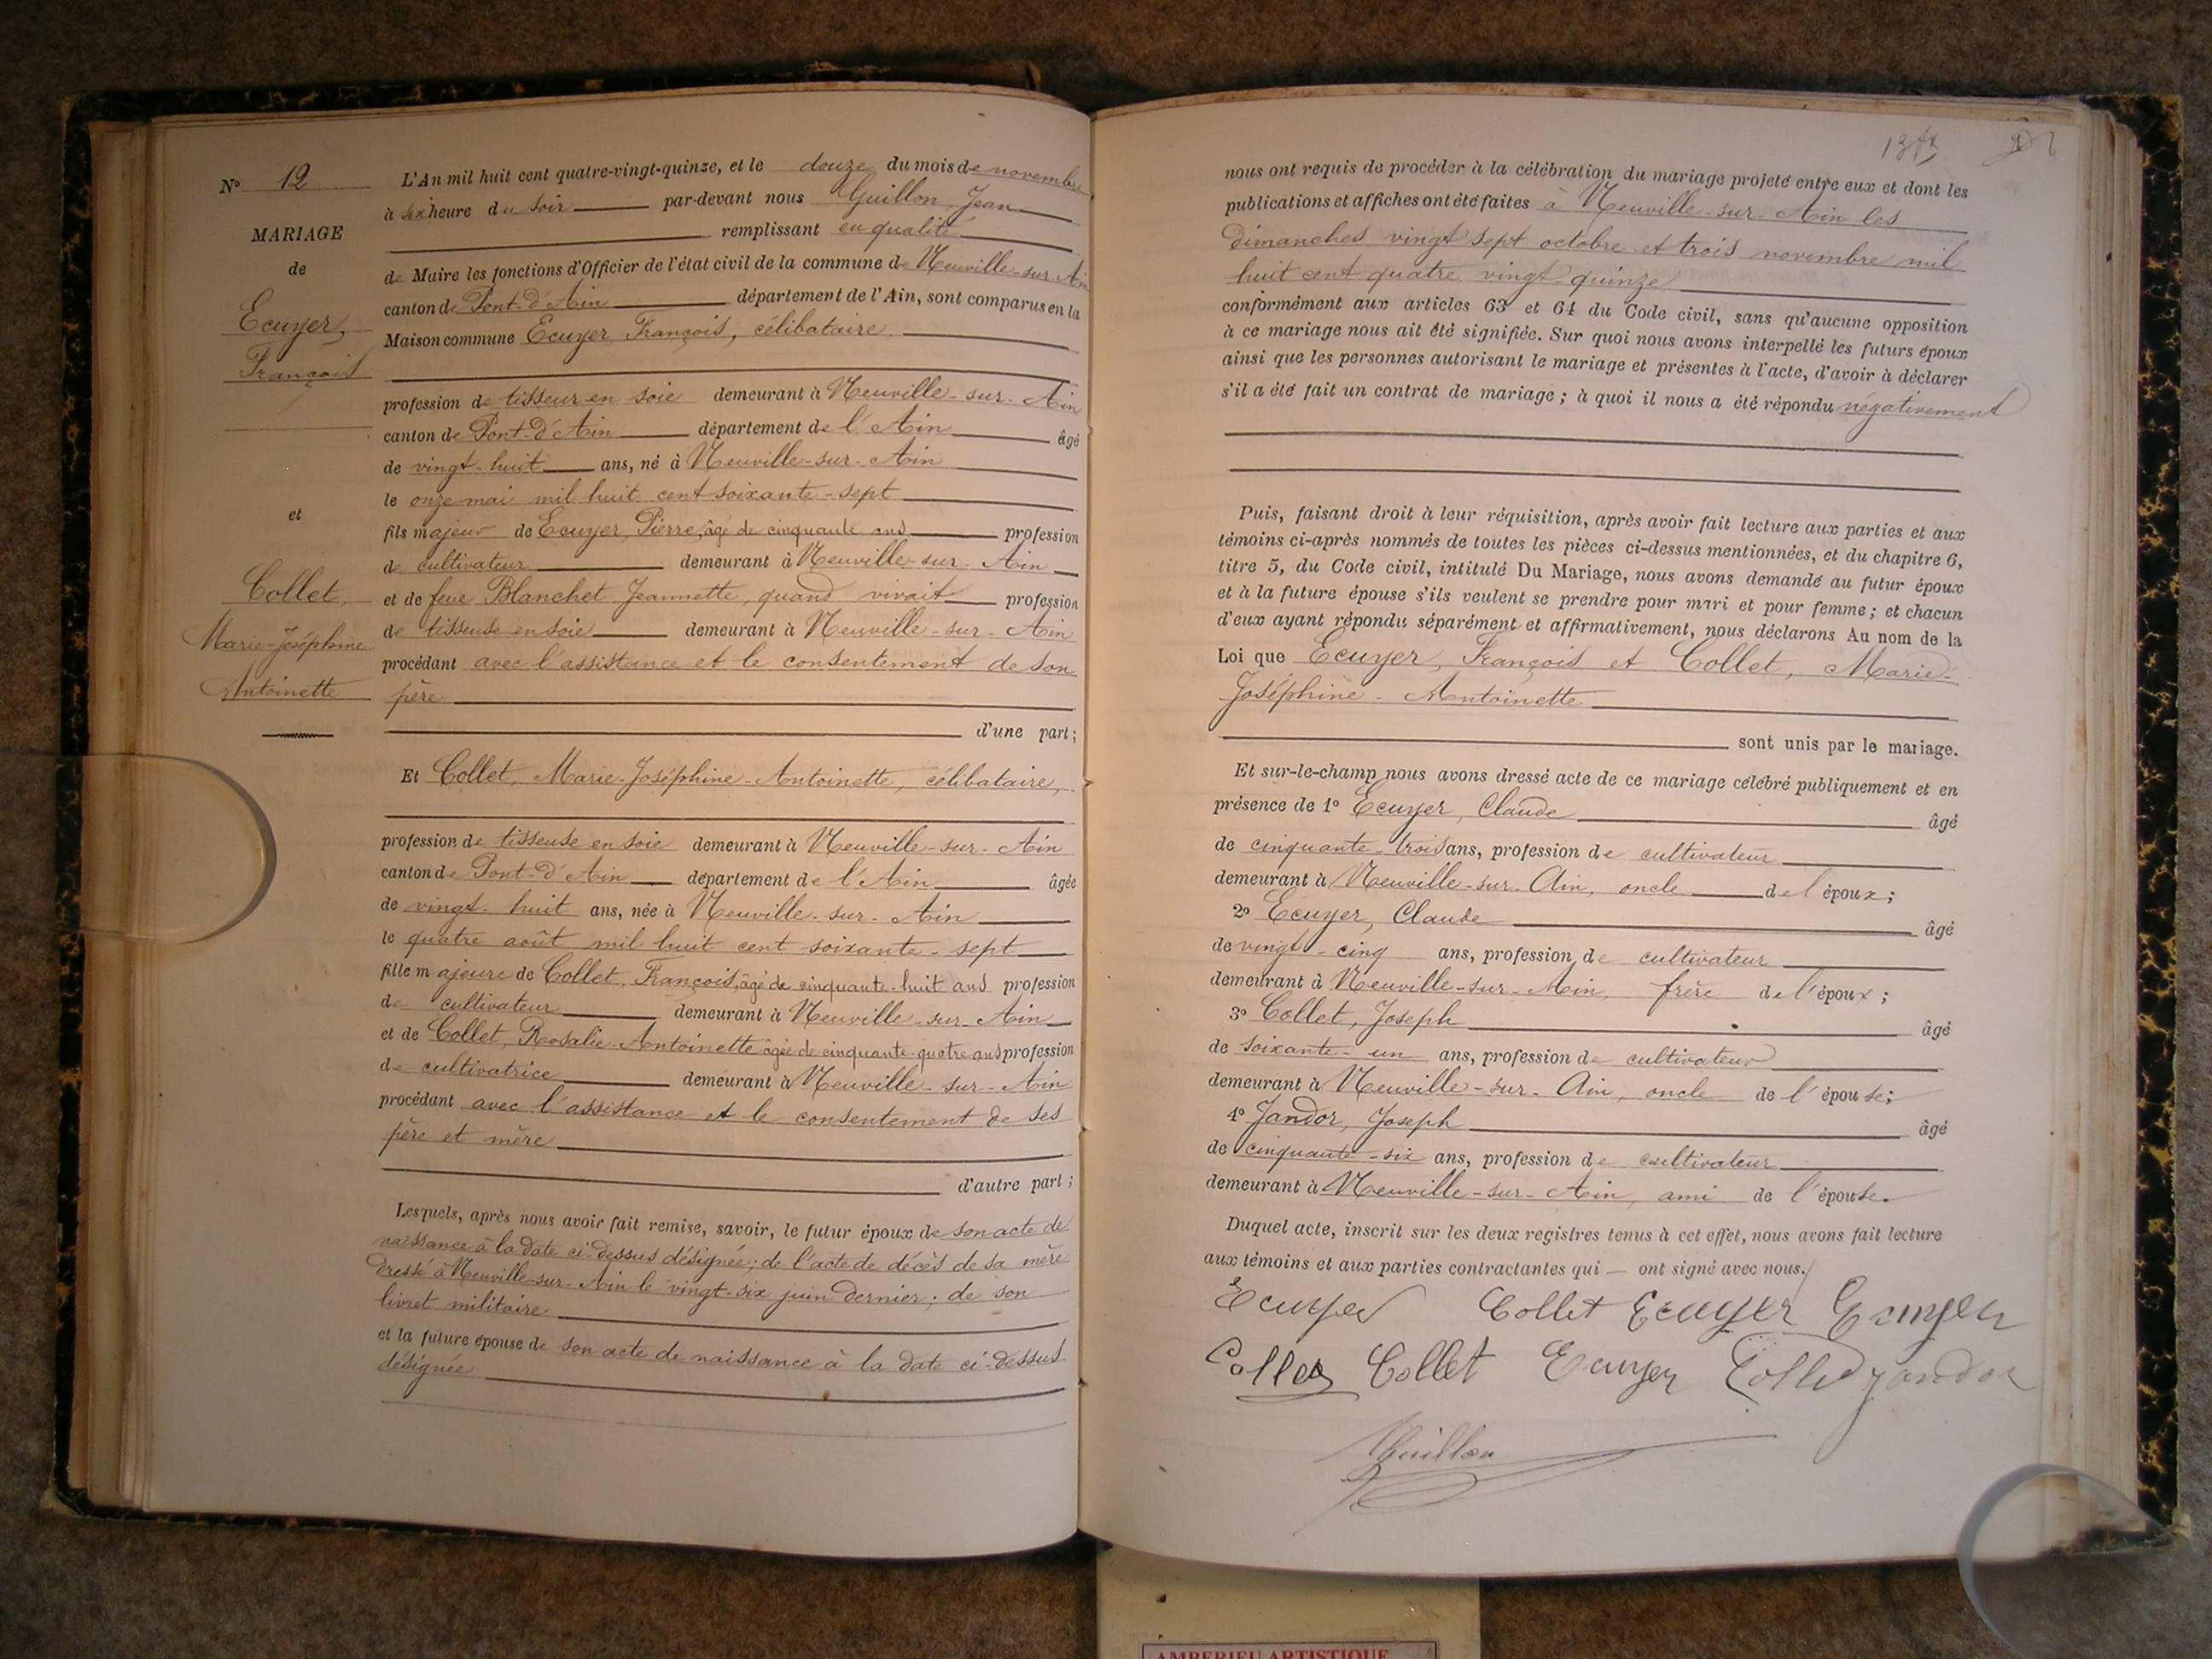 N° 12
MARIAGE
de
Ecuyer,
François
et
Collet
Marie-Joséphine
Antoinette
L'An mil huit cent quatre-vingt-quinze, et le douze du mois de novembre
à six heure du soir par-devant nous Guillon, Jean
remplissant en qualité
de Maire les fonctions d'Officier de l'état civil de la commune de Neuville-sur-Ain
canton de Pont-d'Ain département de l'Ain, sont comparus en la
Maison commune Ecuyer, François, célibataire
profession de tisseur en soie demeurant à Neuville-sur-Ain
canton de Pont-d'Ain département de l'Ain âgé
de vingt-huit ans, né à Neuville-sur-Ain
le onze mai mil huit cent soixante-sept
fils majeur de Ecuyer, Pierre, âgé de cinquante ans profession
de cultivateur demeurant à Neuville-sur-Ain
et de feue Blanchet Jeannette, quand vivait profession
de tisseuse en soie demeurant à Neuville-sur-Ain
procédant avec l'assistance et le consentement de son
père
d'une part;
Et Collet, Marie-Joséphine-Antoinette, célibataire,
profession de tisseuse en soie demeurant à Neuville-sur-Ain
canton de Pont-d'Ain département de l'Ain âgée
de vingt-huit ans, née à Neuville-sur-Ain
le quatre août mil huit cent soixante-sept
fille majeure de Collet, François, âgé de cinquante-huit ans profession
de cultivateur demeurant à Neuville-sur-Ain
et de Collet, Rosalie-Antoinette âgée de cinquante-quatre ans profession
de cultivatrice demeurant à Neuville-sur-Ain
procédant avec l'assistance et le consentement de ses
père et mère
d'autre part;
Lesquels, après nous avoir fait remise, savoir, le futur époux de son acte de
naissance à la date ci-dessus désignée; de l'acte de décès de sa mère
dressé à Neuville-sur-Ain le vingt-six juin dernier; de son
livret militaire
et la future épouse de son acte de naissance à la date ci-dessus
désignée
nous ont requis de procéder à la célébration du mariage projeté entre eux et dont les
publications et affiches ont été faites à Neuville-sur-Ain les
dimanches vingt sept octobre et trois novembre mil
huit cent quatre vingt quinze
conformément aux articles 63 et 64 du Code civil, sans qu'aucune opposition
à ce mariage nous ait été signifiée. Sur quoi nous avons interpellé les futurs époux
ainsi que les personnes autorisant le mariage et présentes à l'acte, d'avoir à déclarer
s'il a été fait un contrat de mariage; à quoi il nous a été répondu négativement
Puis, faisant droit à leur réquisition, après avoir fait lecture aux parties et aux
témoins ci-après nommés de toutes les pièces ci-dessus mentionnées, et du chapitre 6,
titre 5, du Code civil, intitulé Du Mariage, nous avons demandé au futur époux
et à la future épouse s'ils veulent se prendre pour mari et pour femme; et chacun
d'eux ayant répondu séparément et affirmativement, nous déclarons Au nom de la
Loi que Ecuyer, François et Collet, Marie-
Joséphine-Antoinette
sont unis par le mariage.
Et sur-le-champ nous avons dressé acte de ce mariage célébré publiquement et en
présence de 1° Ecuyer, Claude âgé
de cinquante-trois ans, profession de cultivateur
demeurant à Neuville-sur-Ain, oncle de l'époux;
2° Ecuyer, Claude âgé
de vingt-cinq ans, profession de cultivateur
demeurant à Neuville-sur-Ain, frère de l'époux;
3° Collet, Joseph âgé
de soixante-un ans, profession de cultivateur
demeurant à Neuville-sur-Ain, oncle de l'épouse;
4° Jandor, Joseph âgé
de cinquante-six ans, profession de cultivateur
demeurant à Neuville-sur-Ain, ami de l'épouse.
Duquel acte, inscrit sur les deux registres tenus à cet effet, nous avons fait lecture
aux témoins et aux parties contractantes qui ont signé avec nous.
Ecuyer Collet Ecuyer Ecuyer
Collet Collet Ecuyer Collet Jandor
Guillon
AMBERIEU ARTISTIQUE